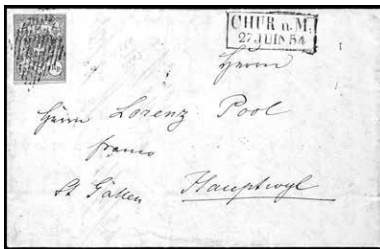 CHUR n. M.
27 JUIN 54
Herrn
Herrn Lorenz Pool
franco
St Gallen Hauptwyl